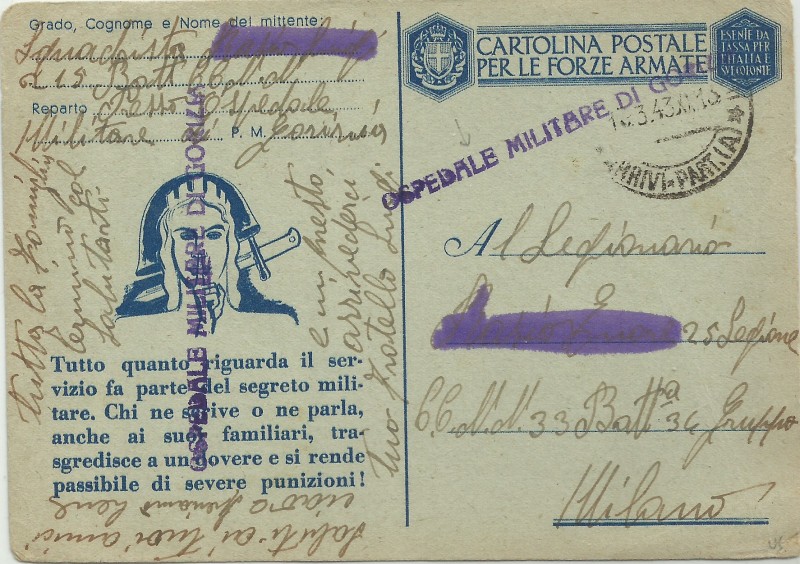 Grado, Cognome e Nome del mittente:
Squadrista
215 Batt CC. N.N.
Reparto Presso Ospedale
Militare di P. M. Gorizia
OSPEDALE MILITARE DI GORIZIA
Tutto quanto riguarda il ser-
vizio fa parte del segreto mili-
tare. Chi ne scrive o ne parla,
anche ai suoi familiari, tra-
sgredisce a un dovere e si rende
passibile di severe punizioni!
Saluti ai tuoi amici
ciao
bene
tutta la famiglia
termino col
salutarti
e un presto
arrivederci
tuo fratello Luigi
CARTOLINA POSTALE
PER LE FORZE ARMATE
ESENTE DA
TASSA PER
L'ITALIA E
SUE COLONIE
OSPEDALE MILITARE DI GO
3.43
ARRIVI-PART.(A)
Al Legionario
25 Legione
CC. N.N. 33 Batt.a 34 Gruppo
Milano